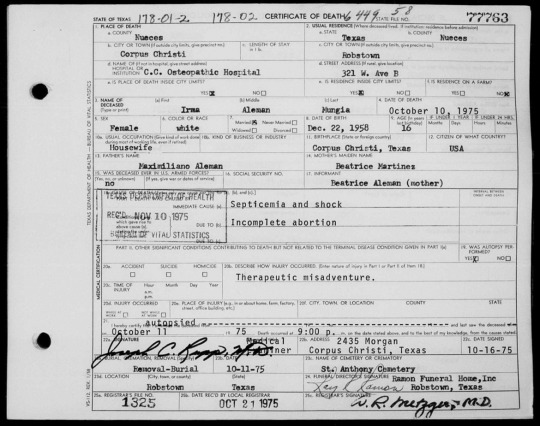 STATE OF TEXAS 178-01-2 178-02 CERTIFICATE OF DEATH 6 449 58 STATE FILE NO. 77763
1. PLACE OF DEATH 2. USUAL RESIDENCE (Where deceased lived. If institution: residence before admission)
a. COUNTY a. STATE b. COUNTY
Nueces Texas Nueces
b. CITY OR TOWN (If outside city limits, give precinct no.) c. LENGTH OF STAY c. CITY OR TOWN (If outside city limits, give precinct no.)
Corpus Christi Robstown
d. NAME OF (If not in hospital, give street address) d. STREET ADDRESS (If rural, give location)
HOSPITAL OR INSTITUTION C.C. Osteopathic Hospital 321 W. Ave B
e. IS PLACE OF DEATH INSIDE CITY LIMITS? e. IS RESIDENCE INSIDE CITY LIMITS? f. IS RESIDENCE ON A FARM?
YES NO YES NO YES NO
3. NAME OF DECEASED (Type or print) (a) First (b) Middle (c) Last 4. DATE OF DEATH
Irma Aleman Mungia October 10, 1975
5. SEX 6. COLOR OR RACE 7. Married Never Married 8. DATE OF BIRTH 9. AGE
Female white Widowed Divorced Dec. 22, 1958 16
10a. USUAL OCCUPATION 10b. KIND OF BUSINESS OR INDUSTRY 11. BIRTHPLACE (State or foreign country) 12. CITIZEN OF WHAT COUNTRY?
Housewife Corpus Christi, Texas USA
13. FATHER'S NAME 14. MOTHER'S MAIDEN NAME
Maximiliano Aleman Beatrice Martinez
15. WAS DECEASED EVER IN U.S. ARMED FORCES? 16. SOCIAL SECURITY NO. 17. INFORMANT
no Beatrice Aleman (mother)
TEXAS DEPARTMENT OF HEALTH
IMMEDIATE CAUSE (a) Septicemia and shock
REC'D NOV 10 1975
DUE TO (b) Incomplete abortion
BUREAU OF VITAL STATISTICS DUE TO (c)
PART II. OTHER SIGNIFICANT CONDITIONS CONTRIBUTING TO DEATH BUT NOT RELATED TO THE TERMINAL DISEASE CONDITION GIVEN IN PART I(a) 19. WAS AUTOPSY PERFORMED?
YES NO
20a. ACCIDENT SUICIDE HOMICIDE 20b. DESCRIBE HOW INJURY OCCURRED.
Therapeutic misadventure.
20c. TIME OF INJURY Hour Month Day Year
20d. INJURY OCCURRED 20e. PLACE OF INJURY 20f. CITY, TOWN, OR LOCATION COUNTY STATE
21. I hereby certify autopsied
October 11 75 Death occurred at 9:00 p. m.
22a. SIGNATURE Medical Examiner 22b. ADDRESS 2435 Morgan 22c. DATE SIGNED
Corpus Christi, Texas 10-16-75
23a. BURIAL, CREMATION, REMOVAL 23b. DATE 23c. NAME OF CEMETERY OR CREMATORY
Removal-Burial 10-11-75 St. Anthony Cemetery
23d. LOCATION (City, town, or county) (State) 24. FUNERAL DIRECTOR'S SIGNATURE Ramon Funeral Home, Inc
Robstown Texas Robstown, Texas
25a. REGISTRAR'S FILE NO. 25b. DATE REC'D BY LOCAL REGISTRAR 25c. REGISTRAR'S SIGNATURE
1325 OCT 21 1975 W. R. Metzger, M.D.
TEXAS DEPARTMENT OF HEALTH — BUREAU OF VITAL STATISTICS
MEDICAL CERTIFICATION